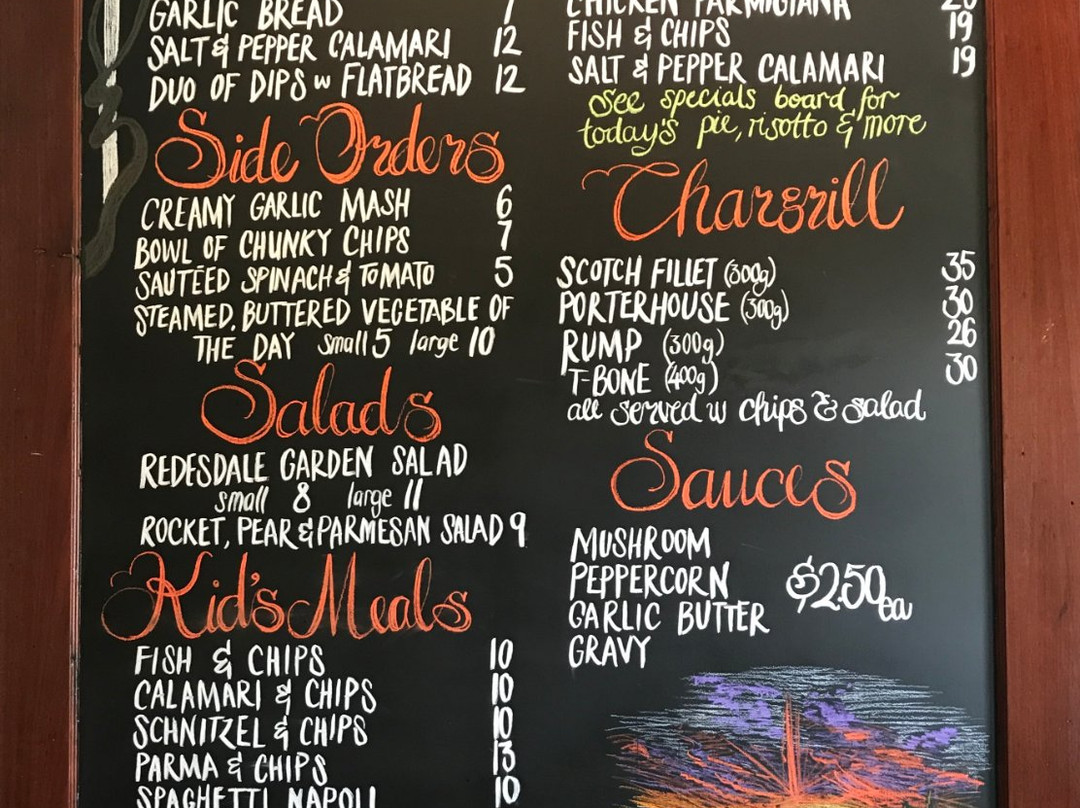 GARLIC BREAD 7
SALT & PEPPER CALAMARI 12
DUO OF DIPS w FLATBREAD 12
Side Orders
CREAMY GARLIC MASH 6
BOWL OF CHUNKY CHIPS 7
SAUTÉED SPINACH & TOMATO 5
STEAMED, BUTTERED VEGETABLE OF
THE DAY small 5 large 10
Salads
REDESDALE GARDEN SALAD
small 8 large 11
ROCKET, PEAR & PARMESAN SALAD 9
Kid's Meals
FISH & CHIPS 10
CALAMARI & CHIPS 10
SCHNITZEL & CHIPS 10
PARMA & CHIPS 13
SPAGHETTI NAPOLI 10
CHICKEN PARMIGIANA
FISH & CHIPS 19
SALT & PEPPER CALAMARI 19
See specials board for
today's pie, risotto & more
Chargrill
SCOTCH FILLET (300g) 35
PORTERHOUSE (300g) 30
RUMP (300g) 26
T-BONE (400g) 30
all served w chips & salad
Sauces
MUSHROOM
PEPPERCORN $2.50 ea
GARLIC BUTTER
GRAVY